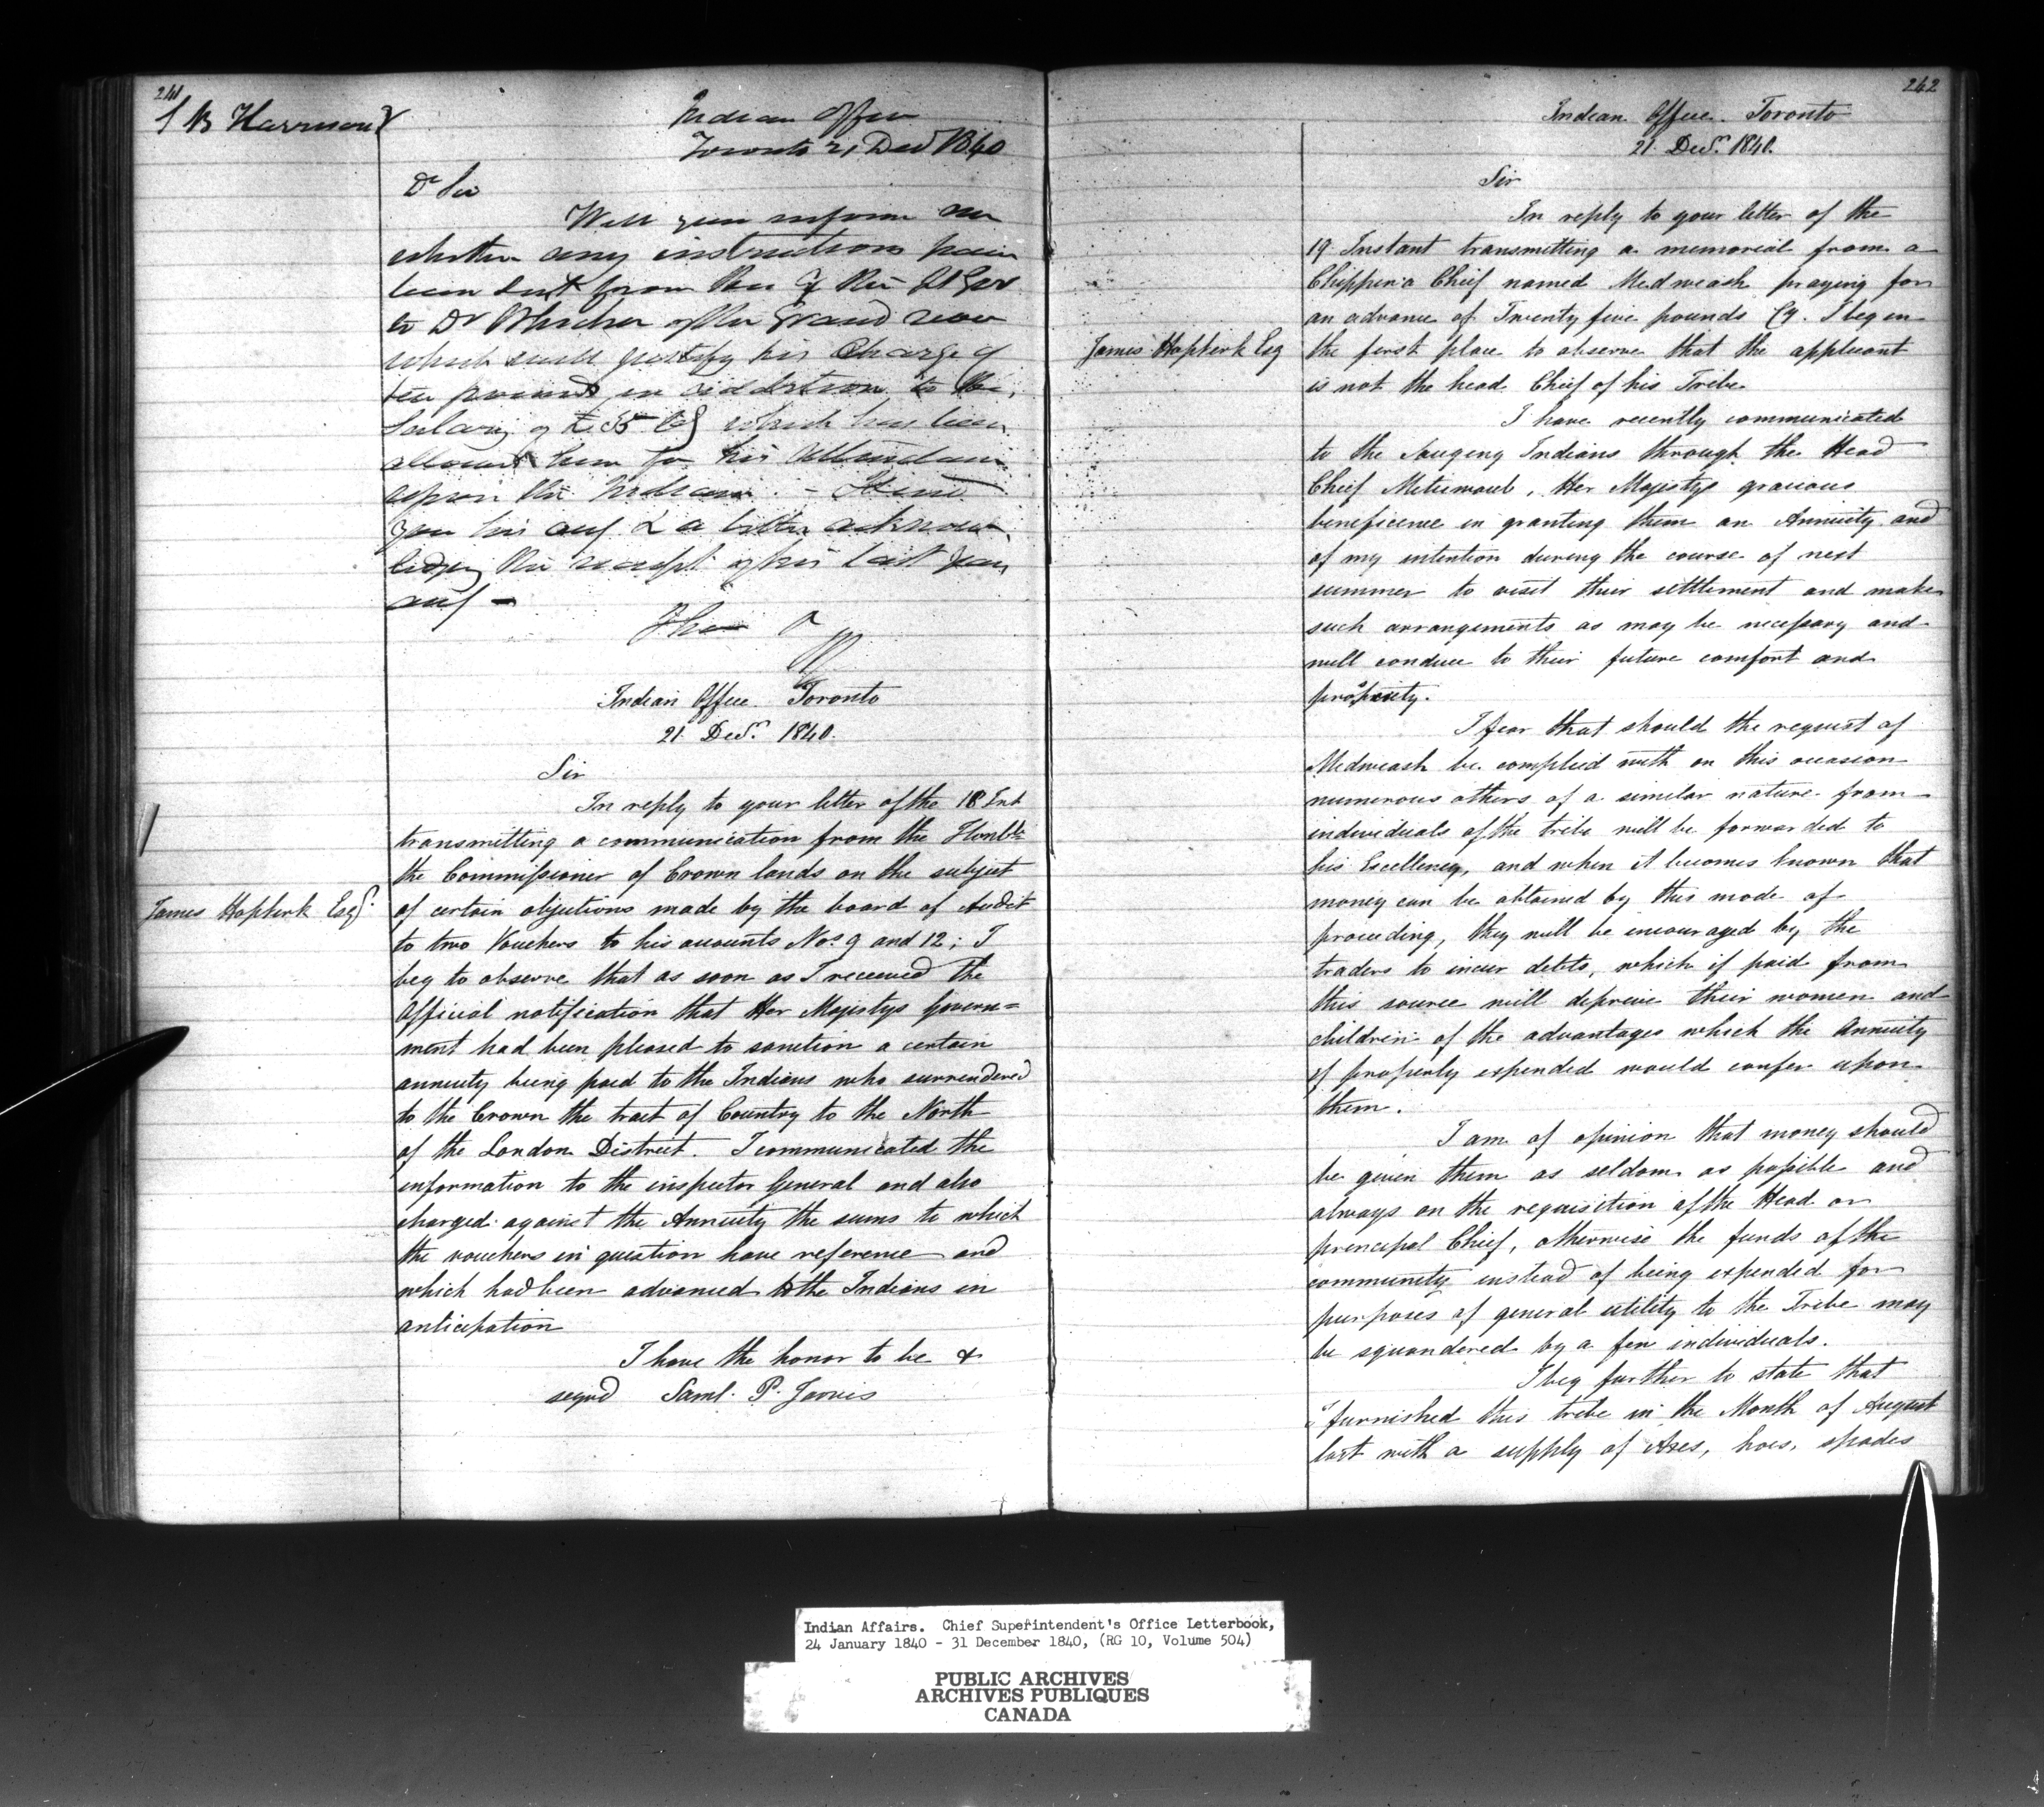 241
S B Harrison
Indian Office
Toronto 21 Decr 1840
Dr Sir
Will you inform me
whether any instructions have
been sent from the of the Lt Gov
to Dr of the Grand river
which will justify his Charge of
ten pounds in addition to the
Salary of £35 Cy which has been
allowed him for his Attendance
upon the Indians. - I send
you his acct & a letter acknow-
ledging the receipt of his last years
acct -
Indian Office Toronto
21 Decr. 1840.
Sir
In reply to your letter of the 18 Inst
transmitting a communication from the Honble
the Commissioner of Crown lands on the subject
James Hopkirk Esqr.
of certain objections made by the board of Audit
to two Vouchers to his accounts Nos 9 and 12; I
beg to observe that as soon as I received the
Official notification that Her Majestys Govern=
ment had been pleased to sanction a certain
annuity being paid to the Indians who surrendered
to the Crown the tract of Country to the North
of the London District. I communicated the
information to the inspector General and also
charged against the Annuity the sums to which
the vouchers in question have reference and
which had been advanced to the Indians in
anticipation
I have the honor to be &
signd Saml. P. Jarvis
242
Indian Office. Toronto
21 Decr. 1840.
Sir
In reply to your letter of the
19 Instant transmitting a memorial from a
Chippewa Chief named Medweash praying for
an advance of Twenty five pounds Cy. I beg in
James Hopkirk Esq
the first place to observe that the applicant
is not the head Chief of his Tribe
I have recently communicated
to the Saugeng Indians through the Head
Chief Metiewaub, Her Majestys gracious
beneficence in granting them an Annuity and
of my intention during the course of next
summer to visit their settlement and make
such arrangements as may be necessary and
will conduce to their future comfort and
prosperity.
I fear that should the request of
Medweash be complied with on this occasion
numerous others of a similar nature from
individuals of the tribe will be forwarded to
his Excellency, and when it becomes known that
money can be obtained by this mode of
proceeding, they will be encouraged by the
traders to incur debts, which if paid from
this source will deprive their women and
children of the advantages which the Annuity
if properly expended would confer upon
them.
I am of opinion that money should
be given them as seldom as possible and
always on the requisition of the Head or
principal Chief, otherwise the funds of the
community instead of being expended for
purposes of general utility to the Tribe may
be squandered by a few individuals.
I beg further to state that
I furnished this tribe in the Month of August
last with a supply of Axes, hoes, spades
Indian Affairs. Chief Superintendent's Office Letterbook,
24 January 1840 - 31 December 1840, (RG 10, Volume 504)
PUBLIC ARCHIVES
ARCHIVES PUBLIQUES
CANADA